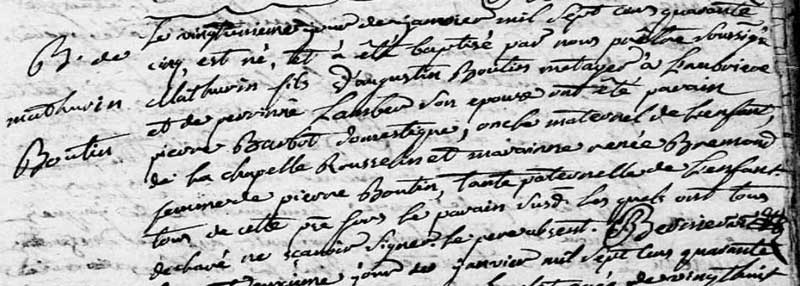 Le vingtunieme jour de janvier mil sept cens quarante
B. de cinq est né, et à été baptisé par nous prestre soussigné
mathurin Mathurin fils d'augustin Boutin metayer à
Boutin et de perrinne Lambert son epouse ont été parain
pierre Barbot domestique, oncle maternel de Lenfant,
de La chapelle Rousselin et marainne renée Bremond
femme de pierre Boutin, tante paternelle de Lenfant
tous de cette psse hors le parain susd. les quels ont tous
declaré ne sçavoir signer. le pere absent.
deuxieme jour de janvier mil sept cens quarante
de vingt huit